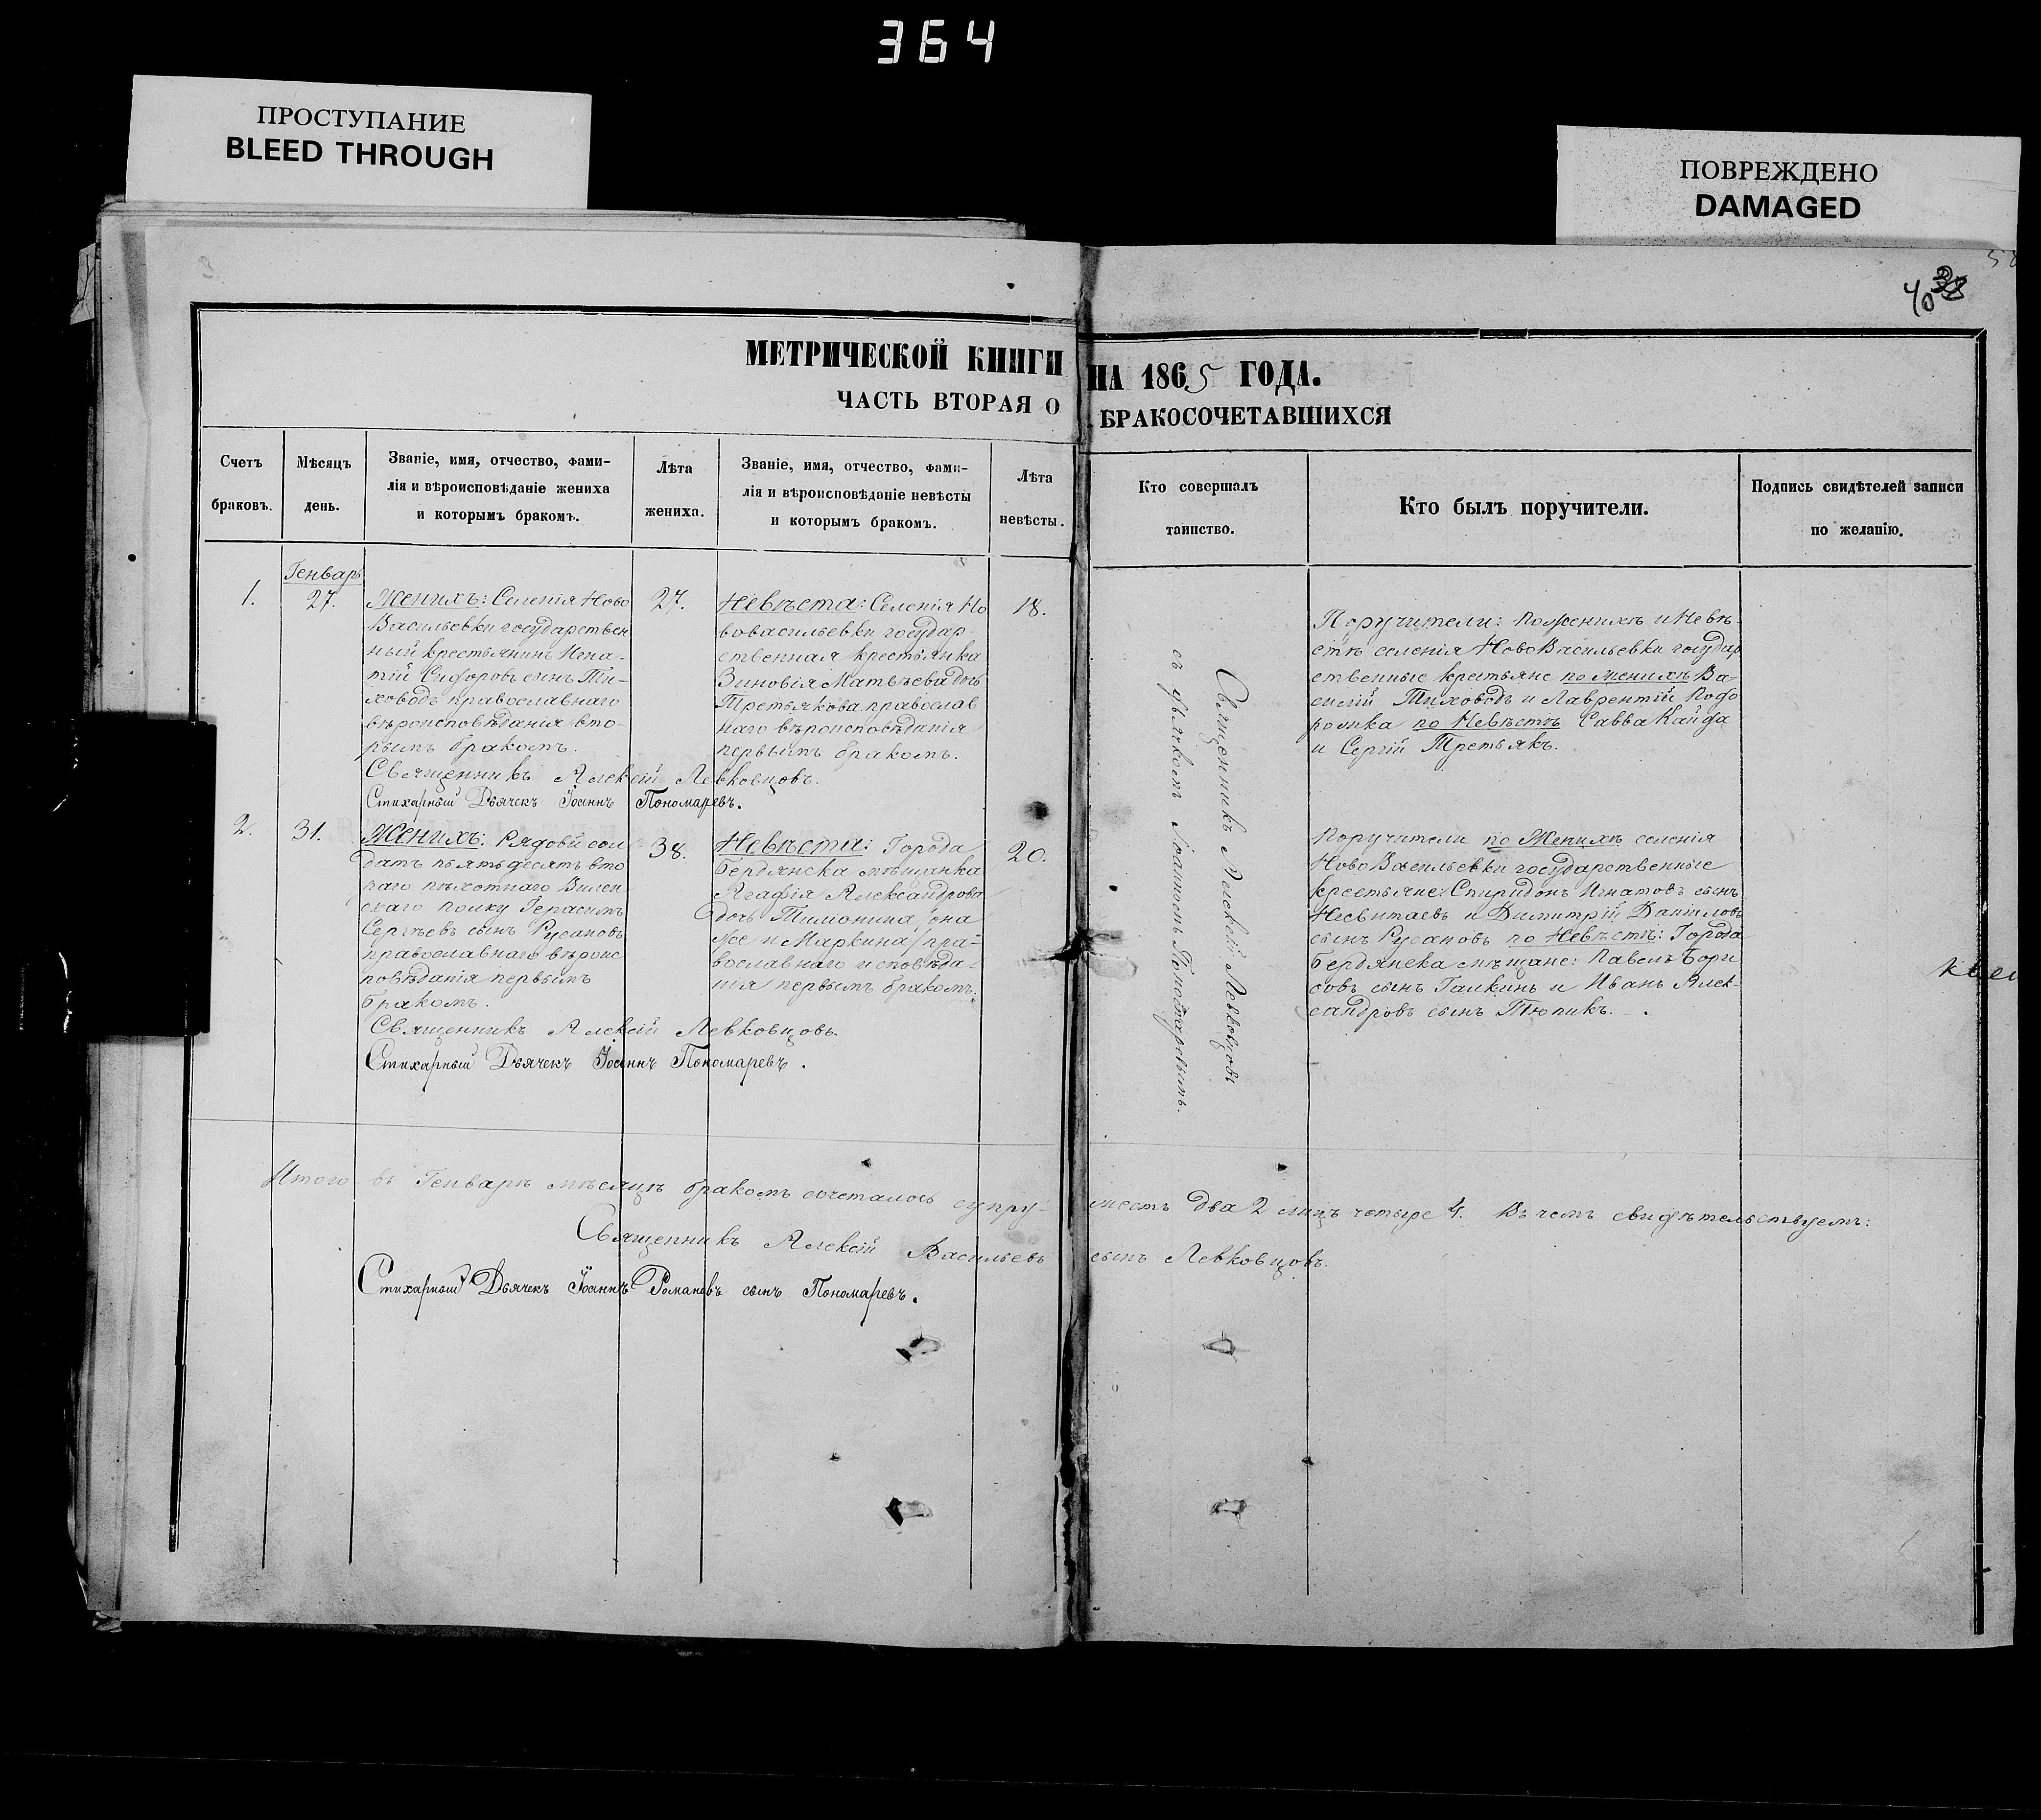 364
ПРОСТУПАНИЕ
BLEED THROUGH
ПОВРЕЖДЕНО
DAMAGED
3
40 38
МЕТРИЧЕСКОЙ КНИГИ НА 1865 ГОДА.
ЧАСТЬ ВТОРАЯ О БРАКОСОЧЕТАВШИХСЯ
Счетъ
браковъ.
Мѣсяцъ
день.
Званіе, имя, отчество, фами-
лія и вѣроисповѣданіе жениха
и которымъ бракомъ.
Лѣта
жениха.
Званіе, имя, отчество, фами-
лія и вѣроисповѣданіе невѣсты
и которымъ бракомъ.
Лѣта
невѣсты.
Кто совершалъ
таинство.
Кто былъ поручители.
Подпись свидѣтелей записи
по желанію.
1.
Генварь
27.
Женихъ: Селенія Ново
Васильевки государствен
ный крестьянинъ Игна-
тій Сидоровъ сынъ Ти-
ховодъ православнаго
вѣроисповѣданія вто-
рымъ бракомъ.
27.
Невѣста: Селенія Но
вовасильевки государ-
ственная крестьянка
Зиновія Матвѣева дочь
Третьякова православ
наго вѣроисповѣданія
первымъ бракомъ.
18.
Священникъ Алексій Левковцовъ.
Стихарный Дьячекъ Іоаннъ Пономаревъ.
Поручители: по женихѣ и Невѣ-
стѣ селенія НовоВасильевки государ
ственные крестьяне по женихѣ Ва-
силій Тиховодъ и Лаврентій
по Невѣстѣ Савва Кайда
и Сергій Третьякъ.
2.
31.
Женихъ: Рядовый сол
датъ пятьдесятъ вто
раго пѣхотнаго Вилен
скаго полку Герасимъ
Сергѣевъ сынъ Русановъ
православнаго вѣроис
повѣданія первымъ
бракомъ.
38.
Невѣста: Города
Бердянска мѣщанка
Агафія Александрова
дочь Тимонина /она
же и Маркина/ пра-
вославнаго исповѣда-
нія первымъ бракомъ.
20.
Священникъ Алексій Левковцовъ.
Стихарный Дьячекъ Іоаннъ Пономаревъ.
Священникъ Алексій Левковцовъ
съ дьячкомъ Іоанномъ Пономаревымъ.
Поручители по Женихѣ селенія
НовоВасильевки государственные
крестьяне: Спиридонъ Игнатовъ сынъ
Несвитаевъ и Димитрій Даніиловъ
сынъ Русановъ по Невѣстѣ: Города
Бердянска мѣщане: Павелъ Бори
совъ сынъ Галкинъ и Иванъ Алек-
сандровъ сынъ Тюпикъ.
Итого въ Генварѣ мѣсяцѣ бракомъ сочеталось супру-жествъ два 2 лицъ четыре 4. Въ чемъ свидѣтельствуемъ:
Священникъ Алексій Васильевъ сынъ Левковцовъ.
Стихарный Дьячекъ Іоаннъ Романовъ сынъ Пономаревъ.